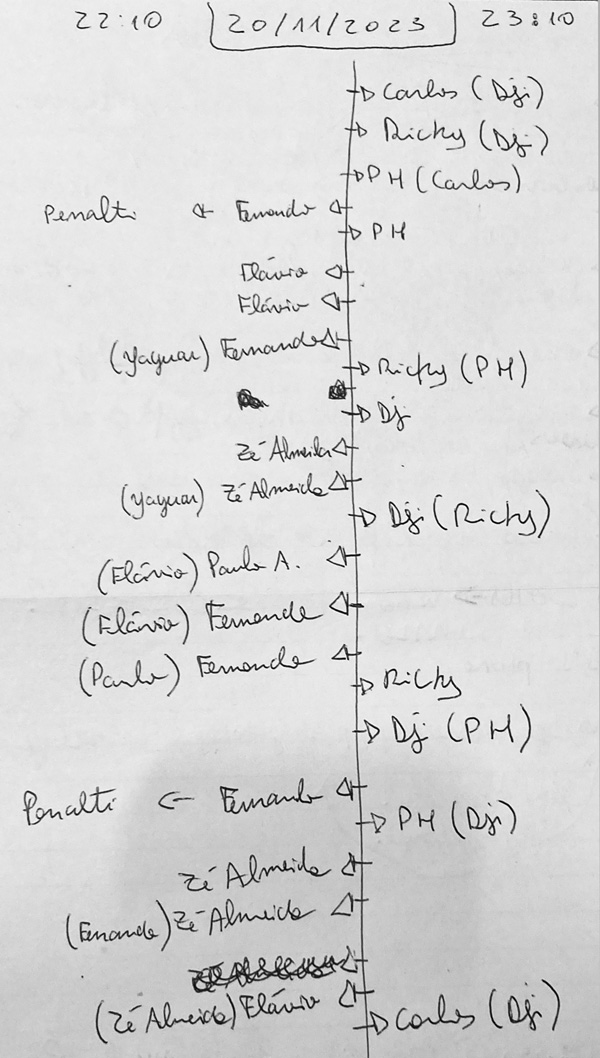 22:10 20/11/2023 23:10
Carlos (Dji)
Ricky (Dji)
PH (Carlos)
Penalti ← Fernando
PH
Flávio
Flávio
(Yaguar) Fernando
Ricky (PH)
Dji
Zé Almeida
(Yaguar) Zé Almeida
Dji (Ricky)
(Flávio) Paulo A.
(Flávio) Fernando
(Paulo) Fernando
Ricky
Dji (PH)
Penalti ← Fernando
PH (Dji)
Zé Almeida
(Fernando) Zé Almeida
(Zé Almeida) Flávio
Carlos (Dji)